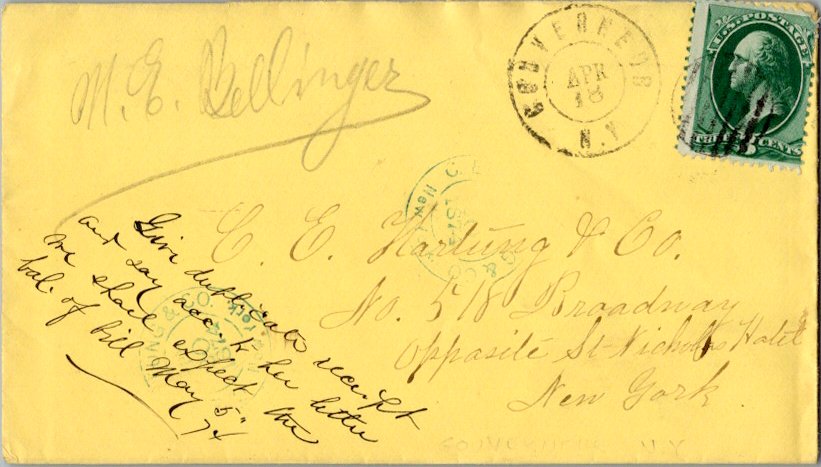 M. E. Bellinger
GOUVERNEUR
APR
18
N.Y.
U.S. POSTAGE
THREE CENTS
C. E. Hartung & Co.
No. 518 Broadway
Opposite St Nicholas Hotel
New York
Give duplicate receipt
and say acc. to her letter
we shall expect the
bal. of bill May 5"
74
GOUVERNEUR N.Y.